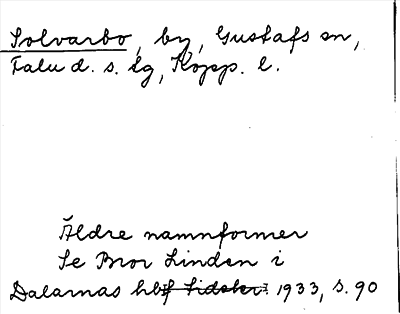 Solvarbo, by, Gustafs sn,
Falu d. s. tg, Kopp. l.
Äldre namnformer
Se Bror Lindén i
Dalarnas hbf 1933, s. 90